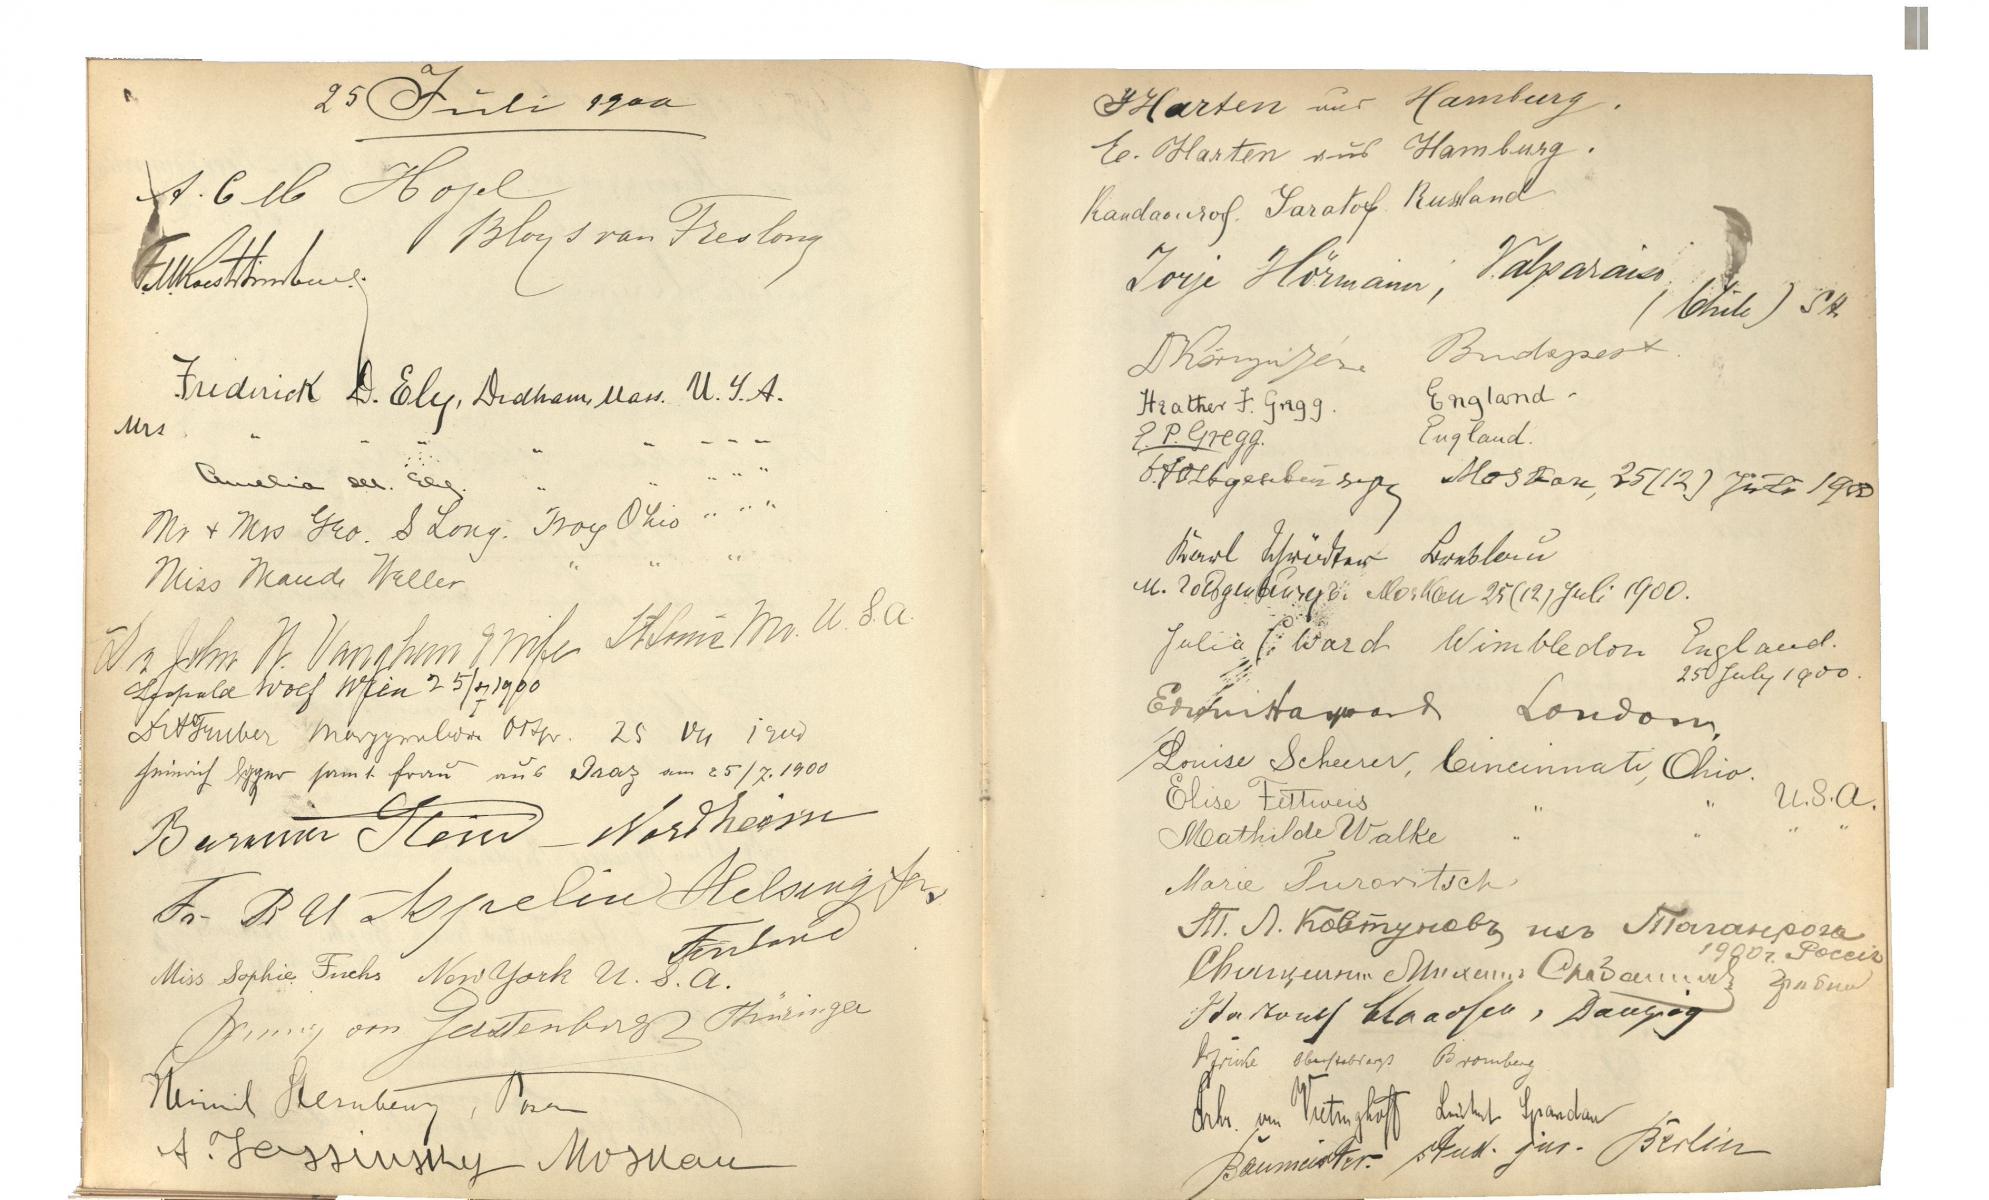 25 Juli 1900
A. C. M. Hojel
Bloys van Treslong
Frederick D. Ely, Dedham, Mass. U. S. A.
Mrs " " " " " " " "
Amelia M. Ely. " " " "
Mr + Mrs Geo. S Long. Troy Ohio " " "
Miss Maude Weller " " "
Dr John W. Vaughan & Wife St Louis Mo. U. S. A.
Leopold Wolf Wien 25/VII 1900
Marggrabowa Ostpr. 25 VII 1900
Heinrich Egger samt Frau aus Graz am 25/7. 1900
Stein – Nordheim
Fr. Aspelin Helsingfors
Finland
Miss Sophie Fuchs New York U. S. A.
Jenny von Gerstenbergk Thüringen
Sternberg, Posen
A. Jassinsky Moskau
Harten aus Hamburg.
E. Harten aus Hamburg.
Saratof Russland
Jorje Hörmann, Valparaiso
(Chile) SA
Budapest
Heather F. Gregg. England -
E. P. Gregg. England.
Moskau, 25(12) Juli 1900
Karl Schrödter Breslau
M. Moskau 25(12) Juli 1900.
Julia C. Ward Wimbledon England.
25 July 1900.
Edwin Hayward London,
Louise Scheerer, Cincinnati, Ohio.
Elise Fettweis " " U. S. A.
Mathilde Walke " " " "
Marie Turovitsch
Т. Л. Ковтуновъ изъ Таганрога
1900 г. Россія
Михаилъ
Claassen, Danzig
Fricke Bromberg
Frhr. von Vietinghoff Leutnt Spandau
Baumeister. stud. jur. Berlin